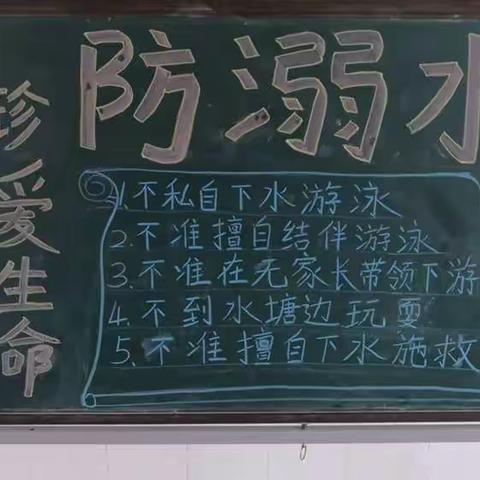 防溺水
珍爱生命
1.不私自下水游泳
2.不准擅自结伴游泳
3.不准在无家长带领下游
4.不到水塘边玩耍
5.不准擅自下水施救